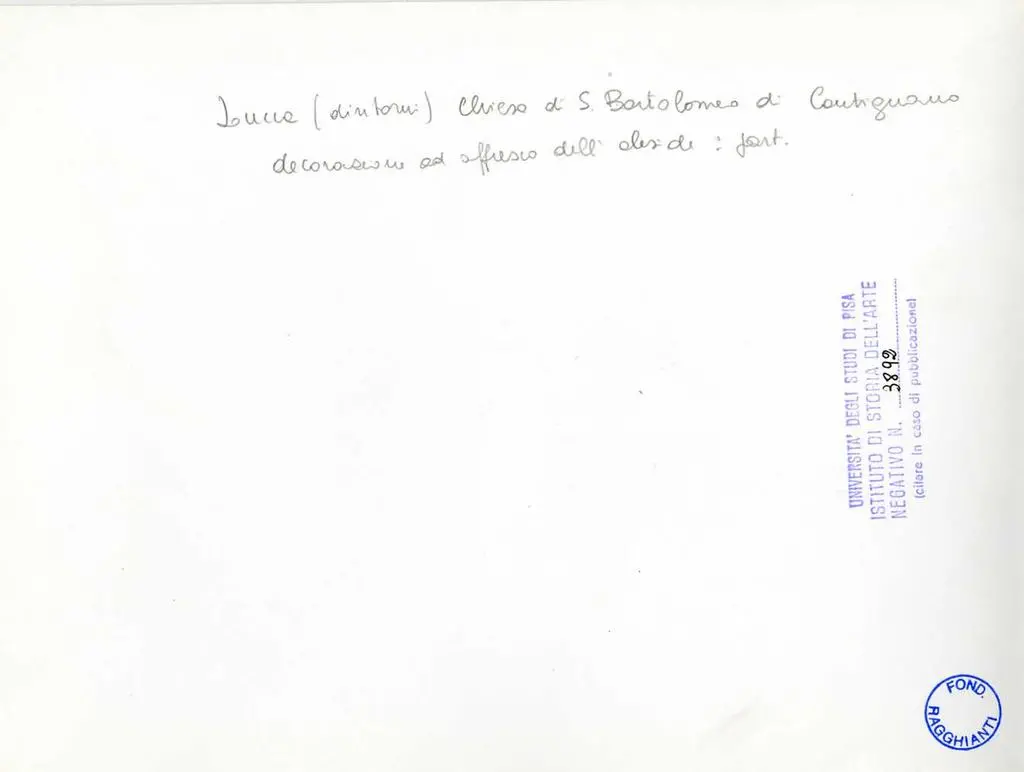 Lucca (dintorni) Chiesa di S. Bartolomeo di Cantignano
decorazione ad affresco dell' abside : part.
UNIVERSITA' DEGLI STUDI DI PISA
ISTITUTO DI STORIA DELL'ARTE
NEGATIVO N. 3892
(citare in caso di pubblicazione)
FOND. RAGGHIANTI